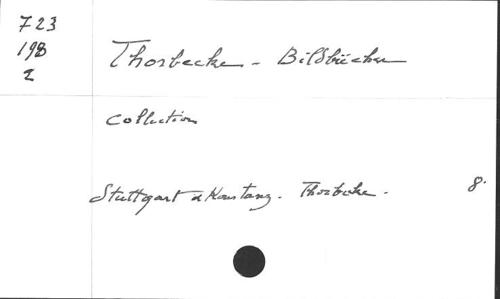 723
198
Z
Thorbecke - Bildbücher
Collection
Stuttgart & Konstanz. Thorbecke.
8.